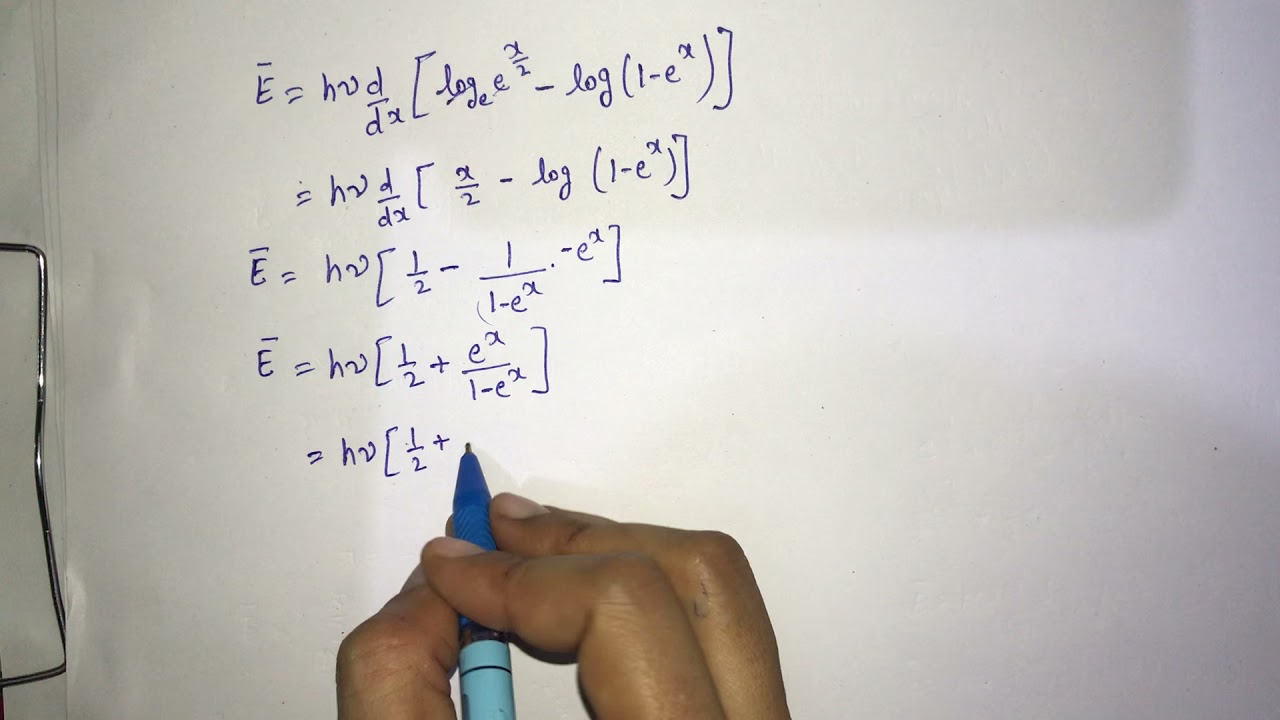 Ē = hν d/dx [log_e e^(x/2) - log(1-e^x)]
= hν d/dx [x/2 - log (1-e^x)]
Ē = hν [1/2 - 1/(1-e^x) · -e^x]
Ē = hν [1/2 + e^x/(1-e^x)]
= hν [1/2 +